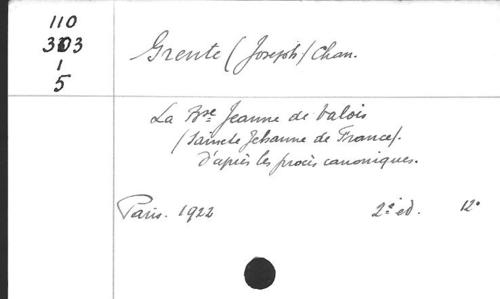 110
3103
1
5
Grente (Joseph) Chan.
La Bse Jeanne de Valois
(Saincte Jehanne de France).
d'après les procès canoniques.
Paris. 1922 2e ed. 12°